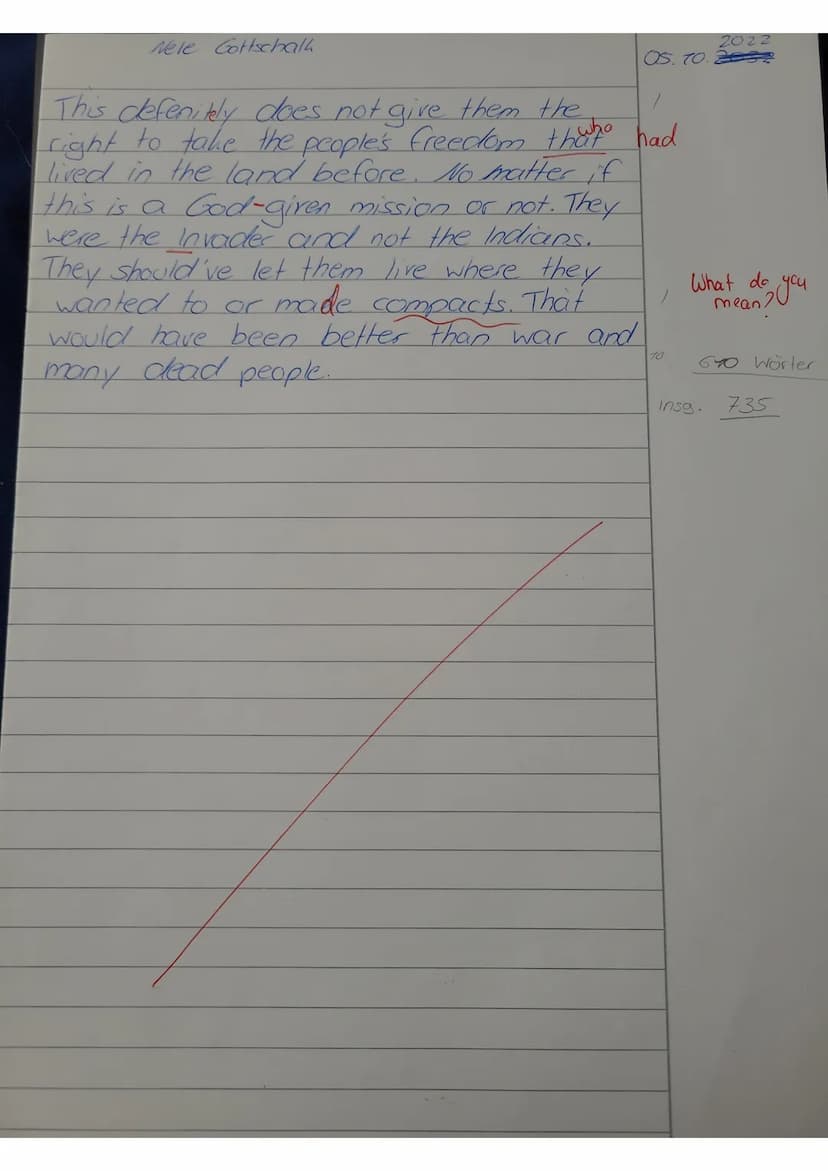 Nele Gottschalk
2022
05.10.
This defenitely does not give them the
right to take the people's freedom that who had
lived in the land before. No matter if
this is a God-given mission or not. They
were the Invader and not the Indians.
They should've let them live where they
wanted to or made compacts. That
What do you
mean?
would have been better than war and
many dead people.
10
670 Wörter
insg. 735